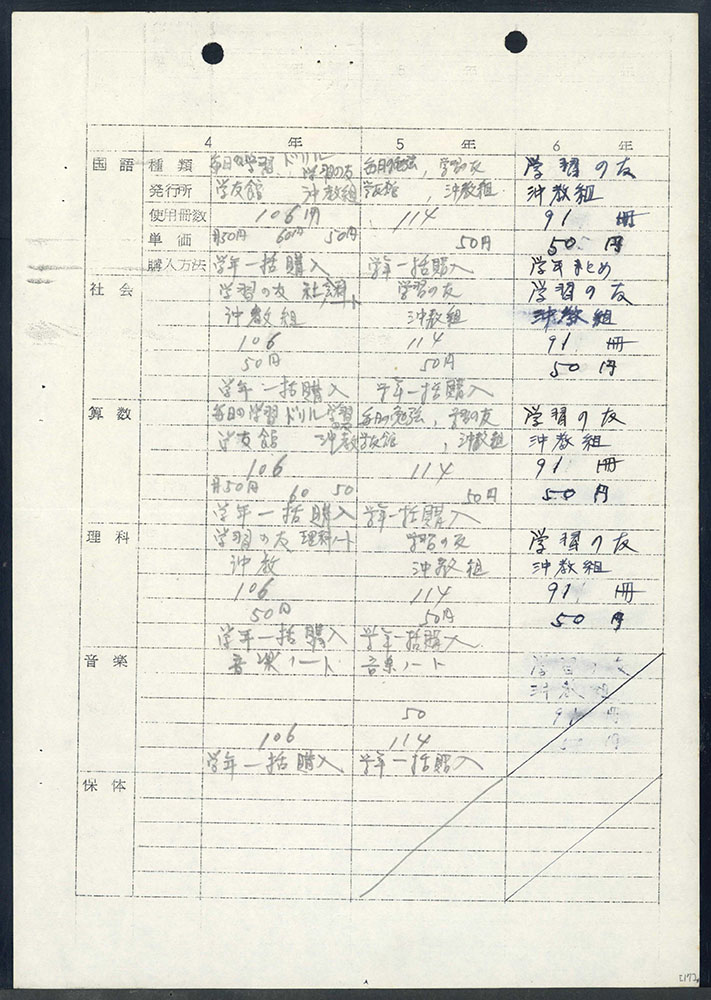 4 年 5 年 6 年
国語 種類 毎日の学習 ドリル 学習の友 毎日の勉強, 学習の友 学習の友
発行所 学友館 沖教組 学友館, 沖教組 沖教組
使用冊数 106冊 114 91 冊
単価 月50円 60円 50円 50円 50 円
購入方法 学年一括購入 学年一括購入 学年まとめ
社会 学習の友 社調ノート 学習の友 学習の友
沖教組 沖教組 沖教組
106 114 91 冊
50円 50円 50 円
学年一括購入 学年一括購入
算数 毎日の学習 ドリル 学習 毎日の勉強, 学習の友 学習の友
学友館 沖教 学友館, 沖教組 沖教組
106 114 91 冊
月50円 60 50 50円 50 円
学年一括購入 学年一括購入
理科 学習の友 理科ノート 学習の友 学習の友
沖教 沖教組 沖教組
106 114 91 冊
50円 50円 50 円
学年一括購入 学年一括購入
音楽 音楽ノート 音楽ノート 学習の友
沖教組
50 91
106 114
学年一括購入 学年一括購入
保体